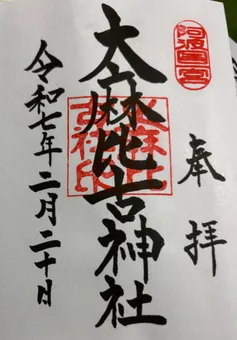 阿波國一宮
奉拝
大麻比古神社
令和七年二月二十日